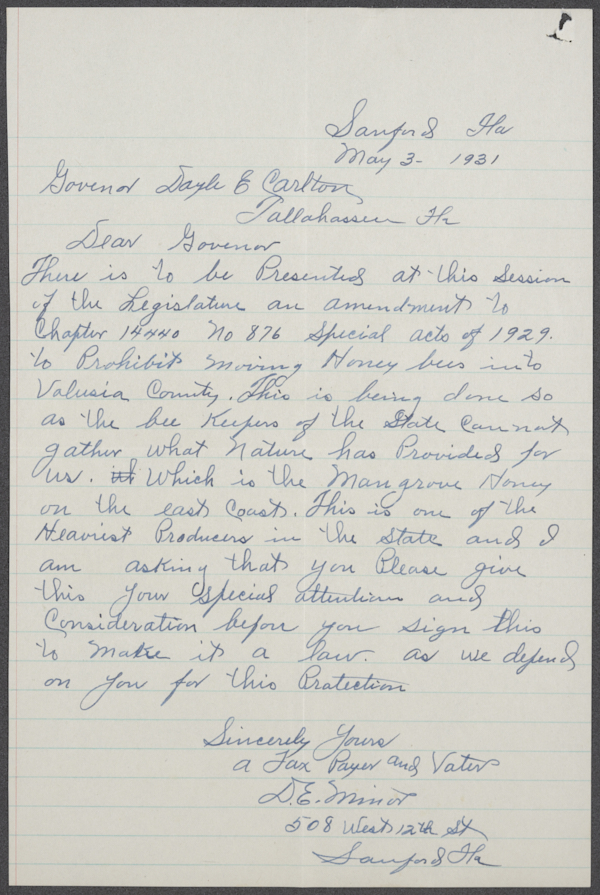 Sanford Fla
May 3 - 1931
Govenor Doyle E Carlton
Tallahassee Fla
Dear Govenor
There is to be Presented at this Session
of the Legislature an amendment to
Chapter 14440 No 876 Special acts of 1929.
to Prohibit moving Honey bees into
Valusia County. This is being done so
as the bee Keepers of the State Cannot
gather what Nature has Provided for
us. Which is the Mangrove Honey
on the east Coast. This is one of the
Heaviest Producers in the State and I
am asking that you Please give
this your Special attention and
Consideration before you sign this
to make it a law. as we depend
on you for this Protection
Sincerely Yours
a Tax Payer and Voter
D.E. Minor
508 West 12th St
Sanford Fla